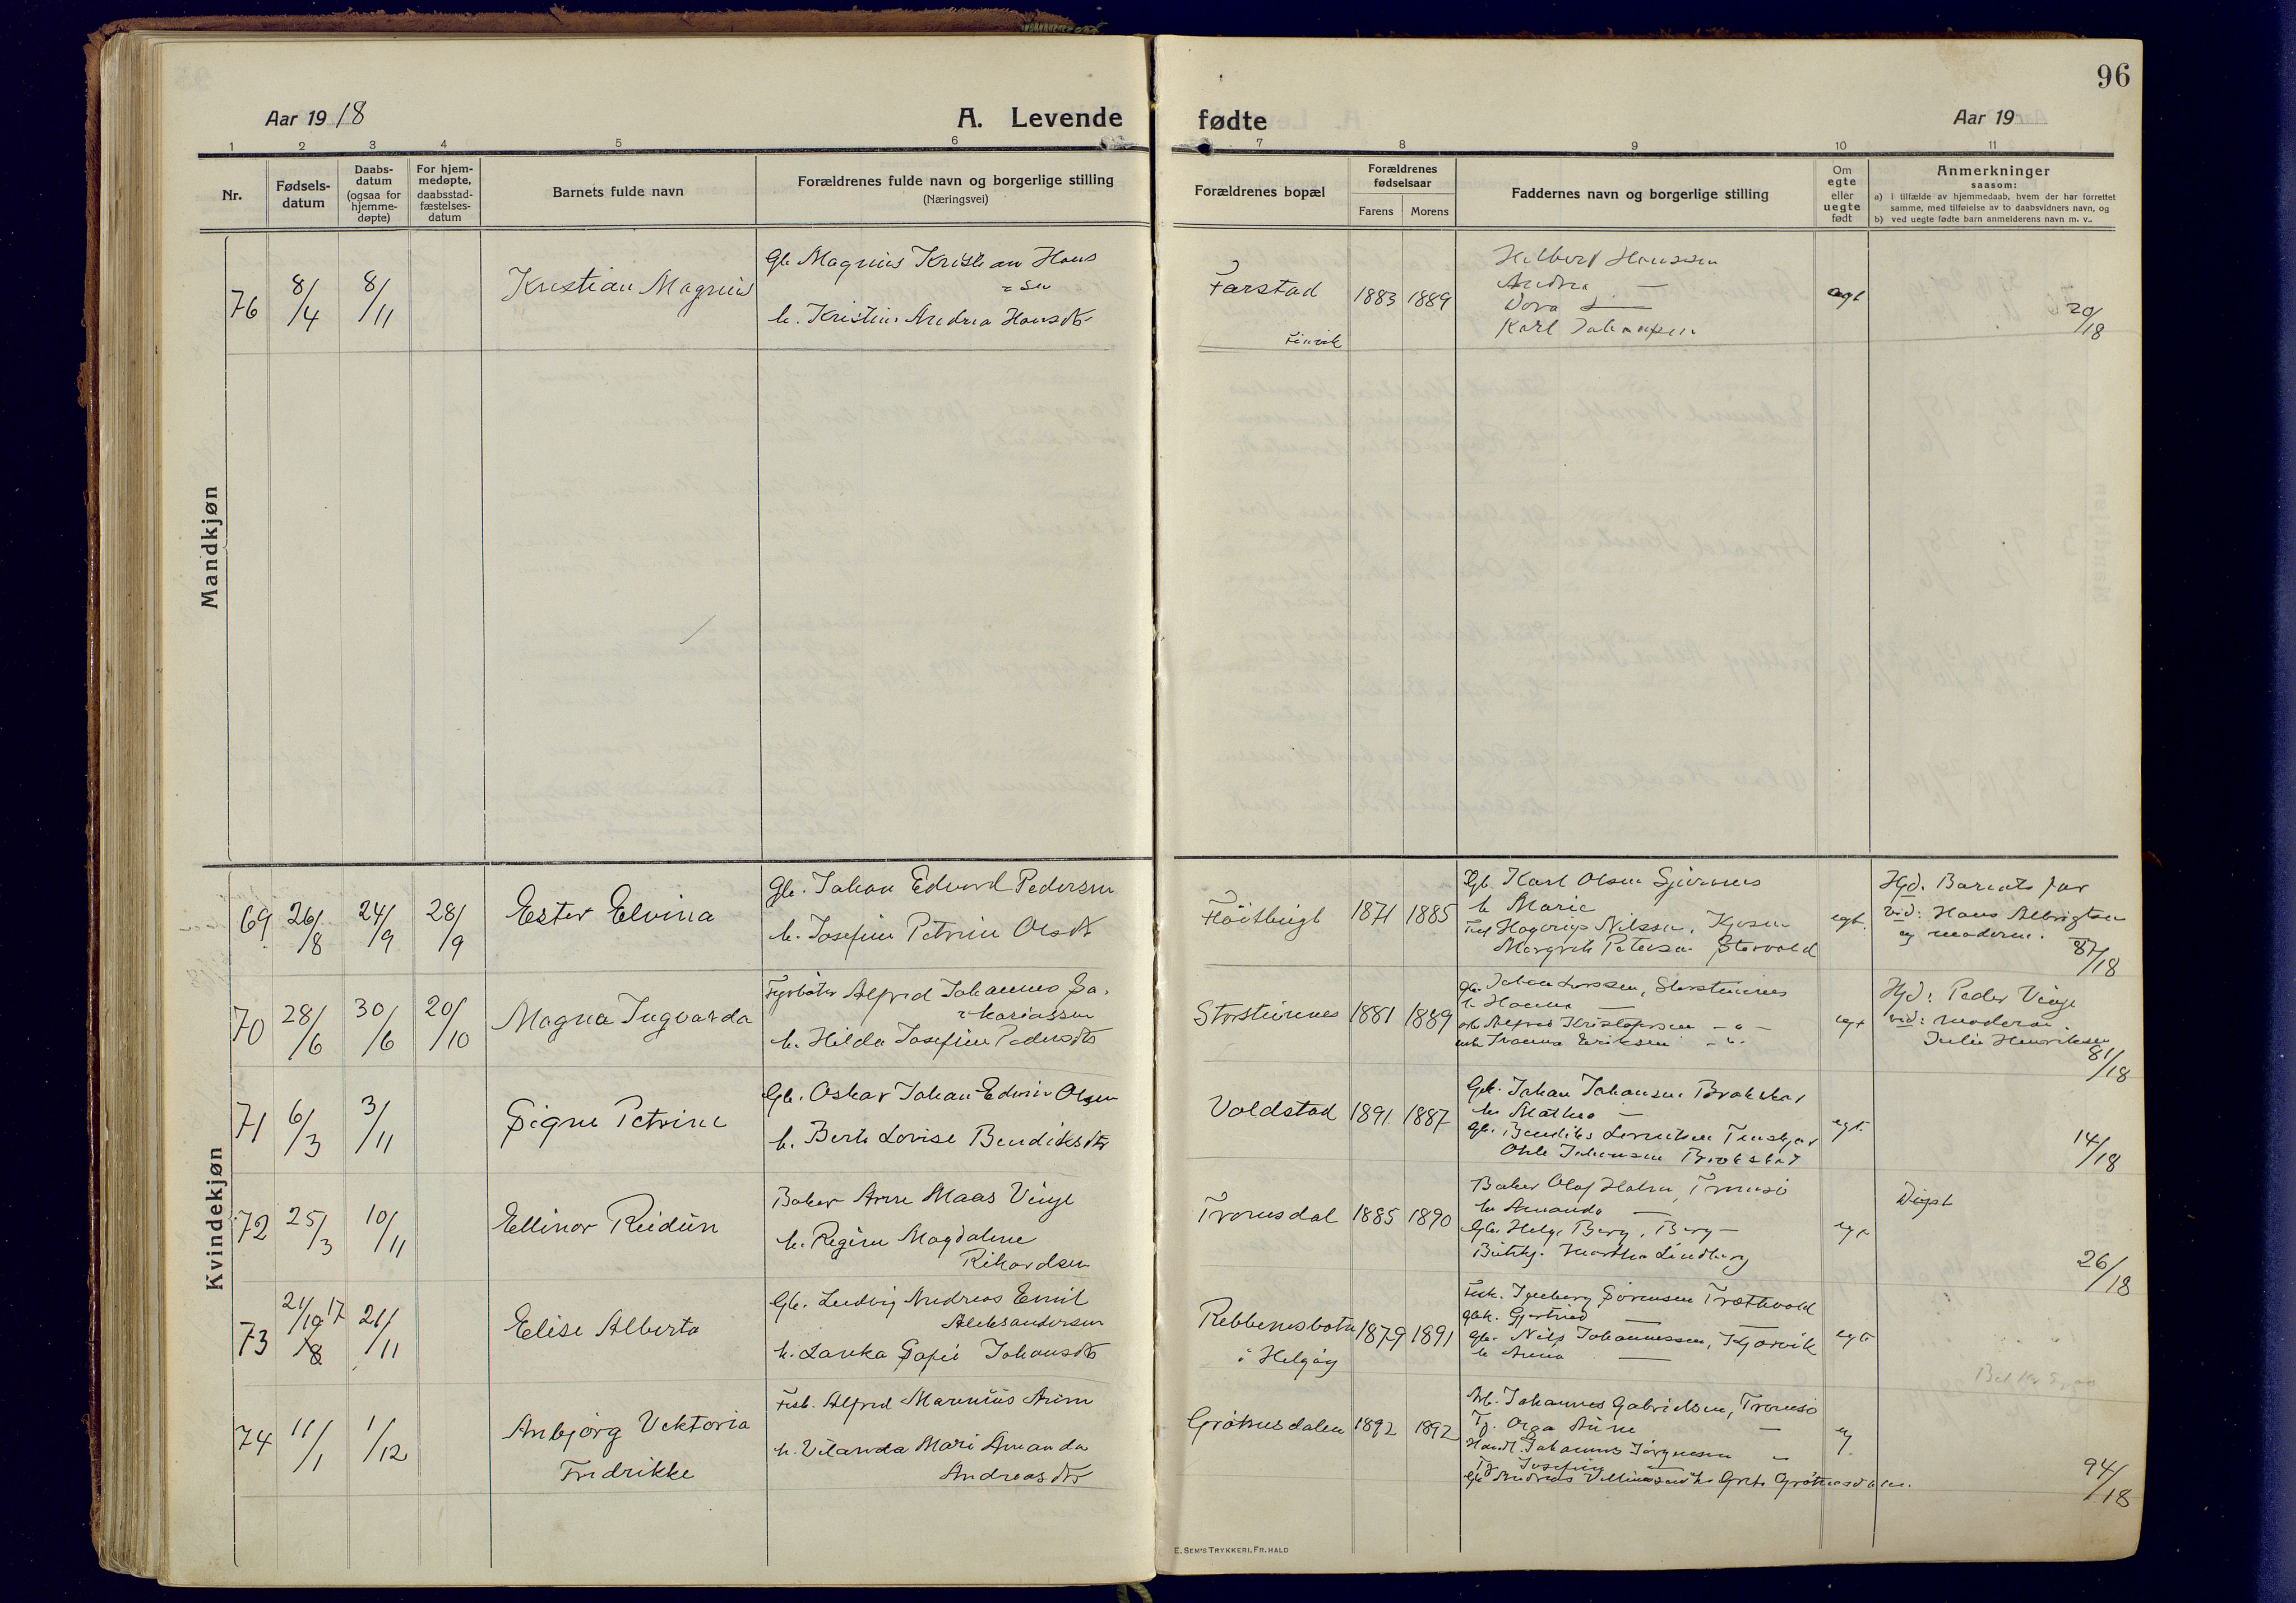 96
Aar 1918
A. Levende
fødte
Aar 19
1 2 3 4 5 6 7 8 9 10 11
Nr.
Fødsels-
datum
Daabs-
datum
(ogsaa for
hjemme-
døpte)
For hjem-
medøpte,
daabsstad-
fæstelses-
datum
Barnets fulde navn
Forældrenes fulde navn og borgerlige stilling
(Næringsvei)
Forældrenes bopæl
Forældrenes
fødselsaar
Farens Morens
Faddernes navn og borgerlige stilling
Om
egte
eller
uegte
født
Anmerkninger
saasom:
a) i tilfælde av hjemmedaab, hvem der har forrettet
samme, med tilføielse av to daabsvidners navn, og
b) ved uegte fødte barn anmelderens navn m. v..
Mandkjøn
76 8/4 8/11 Kristian Magnus
Gb. Magnus Kristian Hans
sen
h. Kristine Andrea Hansdtr
Farstad 1883 1889
Hilbert Hanssen
Andrea —
Dora —
Karl Johansen
egt
20/18
Kvindekjøn
69 26/8 24/9 28/9 Ester Elvina
Gb. Johan Edvard Pedersen
h. Josefine Petrine Olsdtr
1871 1885
Gb. Karl Olsen
h Marie
Hagerup Nilssen, Kjosen
Storvold
egt.
Hjd. Barnets far
vid: Hans Albrigtsen
og moderen.
87/18
70 28/6 30/6 20/10 Magna Ingvarda
Alfred Johannes Za-
kariassen
h. Hilda Josefine Pedersdtr
Storsteinnes 1881 1889
gb. Johan Larssen, Storsteinnes
h. Hanna —
Alfred Kristofersen — " —
Eriksen — " —
egt
Hjd: Peder Vinje
vid: moderen.
Julie Henriksen
81/18
71 6/3 3/11 Signe Petrine
Gb. Oskar Johan Edvin Olsen
h. Berte Lovise Bendiksdtr
Voldstad 1891 1887
Gb. Johan Johansen Brokskar
h. Mathea —
gb. Bendiks Lorentsen
Johansen
egt.
14/18
72 25/3 10/11 Ellinor Reidun
Baker Arne Maas Vinje
h. Regine Magdalene
Rikardsen
Tromsdal 1885 1890
Baker Olaf Holm, Tromsö
h. Amanda —
Gb. Helge Berg, Berg —
Martha Lindberg
egt
Döpt
26/18
73 21/10 17 21/11 Elise Alberta
Gb. Ludvig Andreas Emil
Aleksandersen
h. Lavka Sofie Johansdtr
Rebbenesbotn
i Helgöy
1879 1891
Fisk. Ingeberg Sörensen Trætvold
gbk. Gjertrud —
gb. Nils Johannessen, Kjorvik
h Anna —
egt
74 11/1 1/12 Anbjörg Viktoria
Fredrikke
Fisk. Alfred Marenius Aune
h. Vilarda Mari Amanda
Andreasdtr
Grötnesdalen 1892 1892
Arb. Johannes Gabrielsen, Tromsö
Tj. Olga Aune —
Handl. Johannes Jörgensen "
Tj Josefine —
Gb Andreas Grötnesdalen.
94/18
E. SEM'S TRYKKERI, FR.HALD